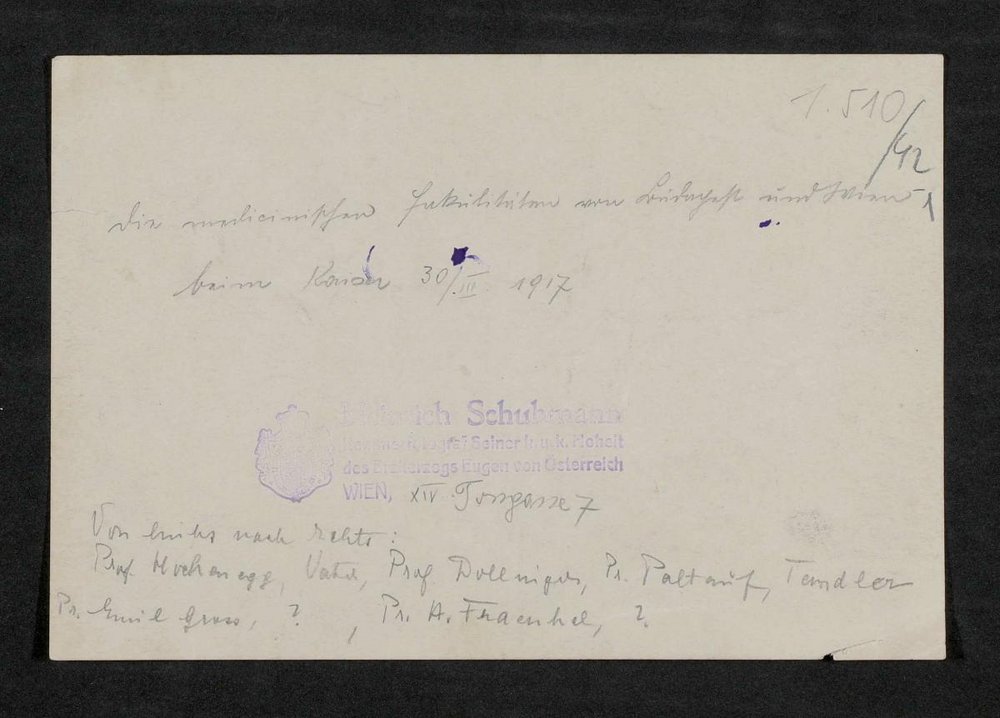 1.510/42
Die medicinischen Fakultäten von Budapest und Wien
beim Kaiser 30/III. 1917
Heinrich Schuhmann
Seiner k. u. k. Hoheit
des Erzherzogs Eugen von Österreich
WIEN, XIV
7
Von links nach rechts:
Prof. Hochenegg, Vater, Prof. Dollinger, Pr. Paltauf, Tandler
Pr. Emil Gross, ?, Pr. A. Fraenkel, ?